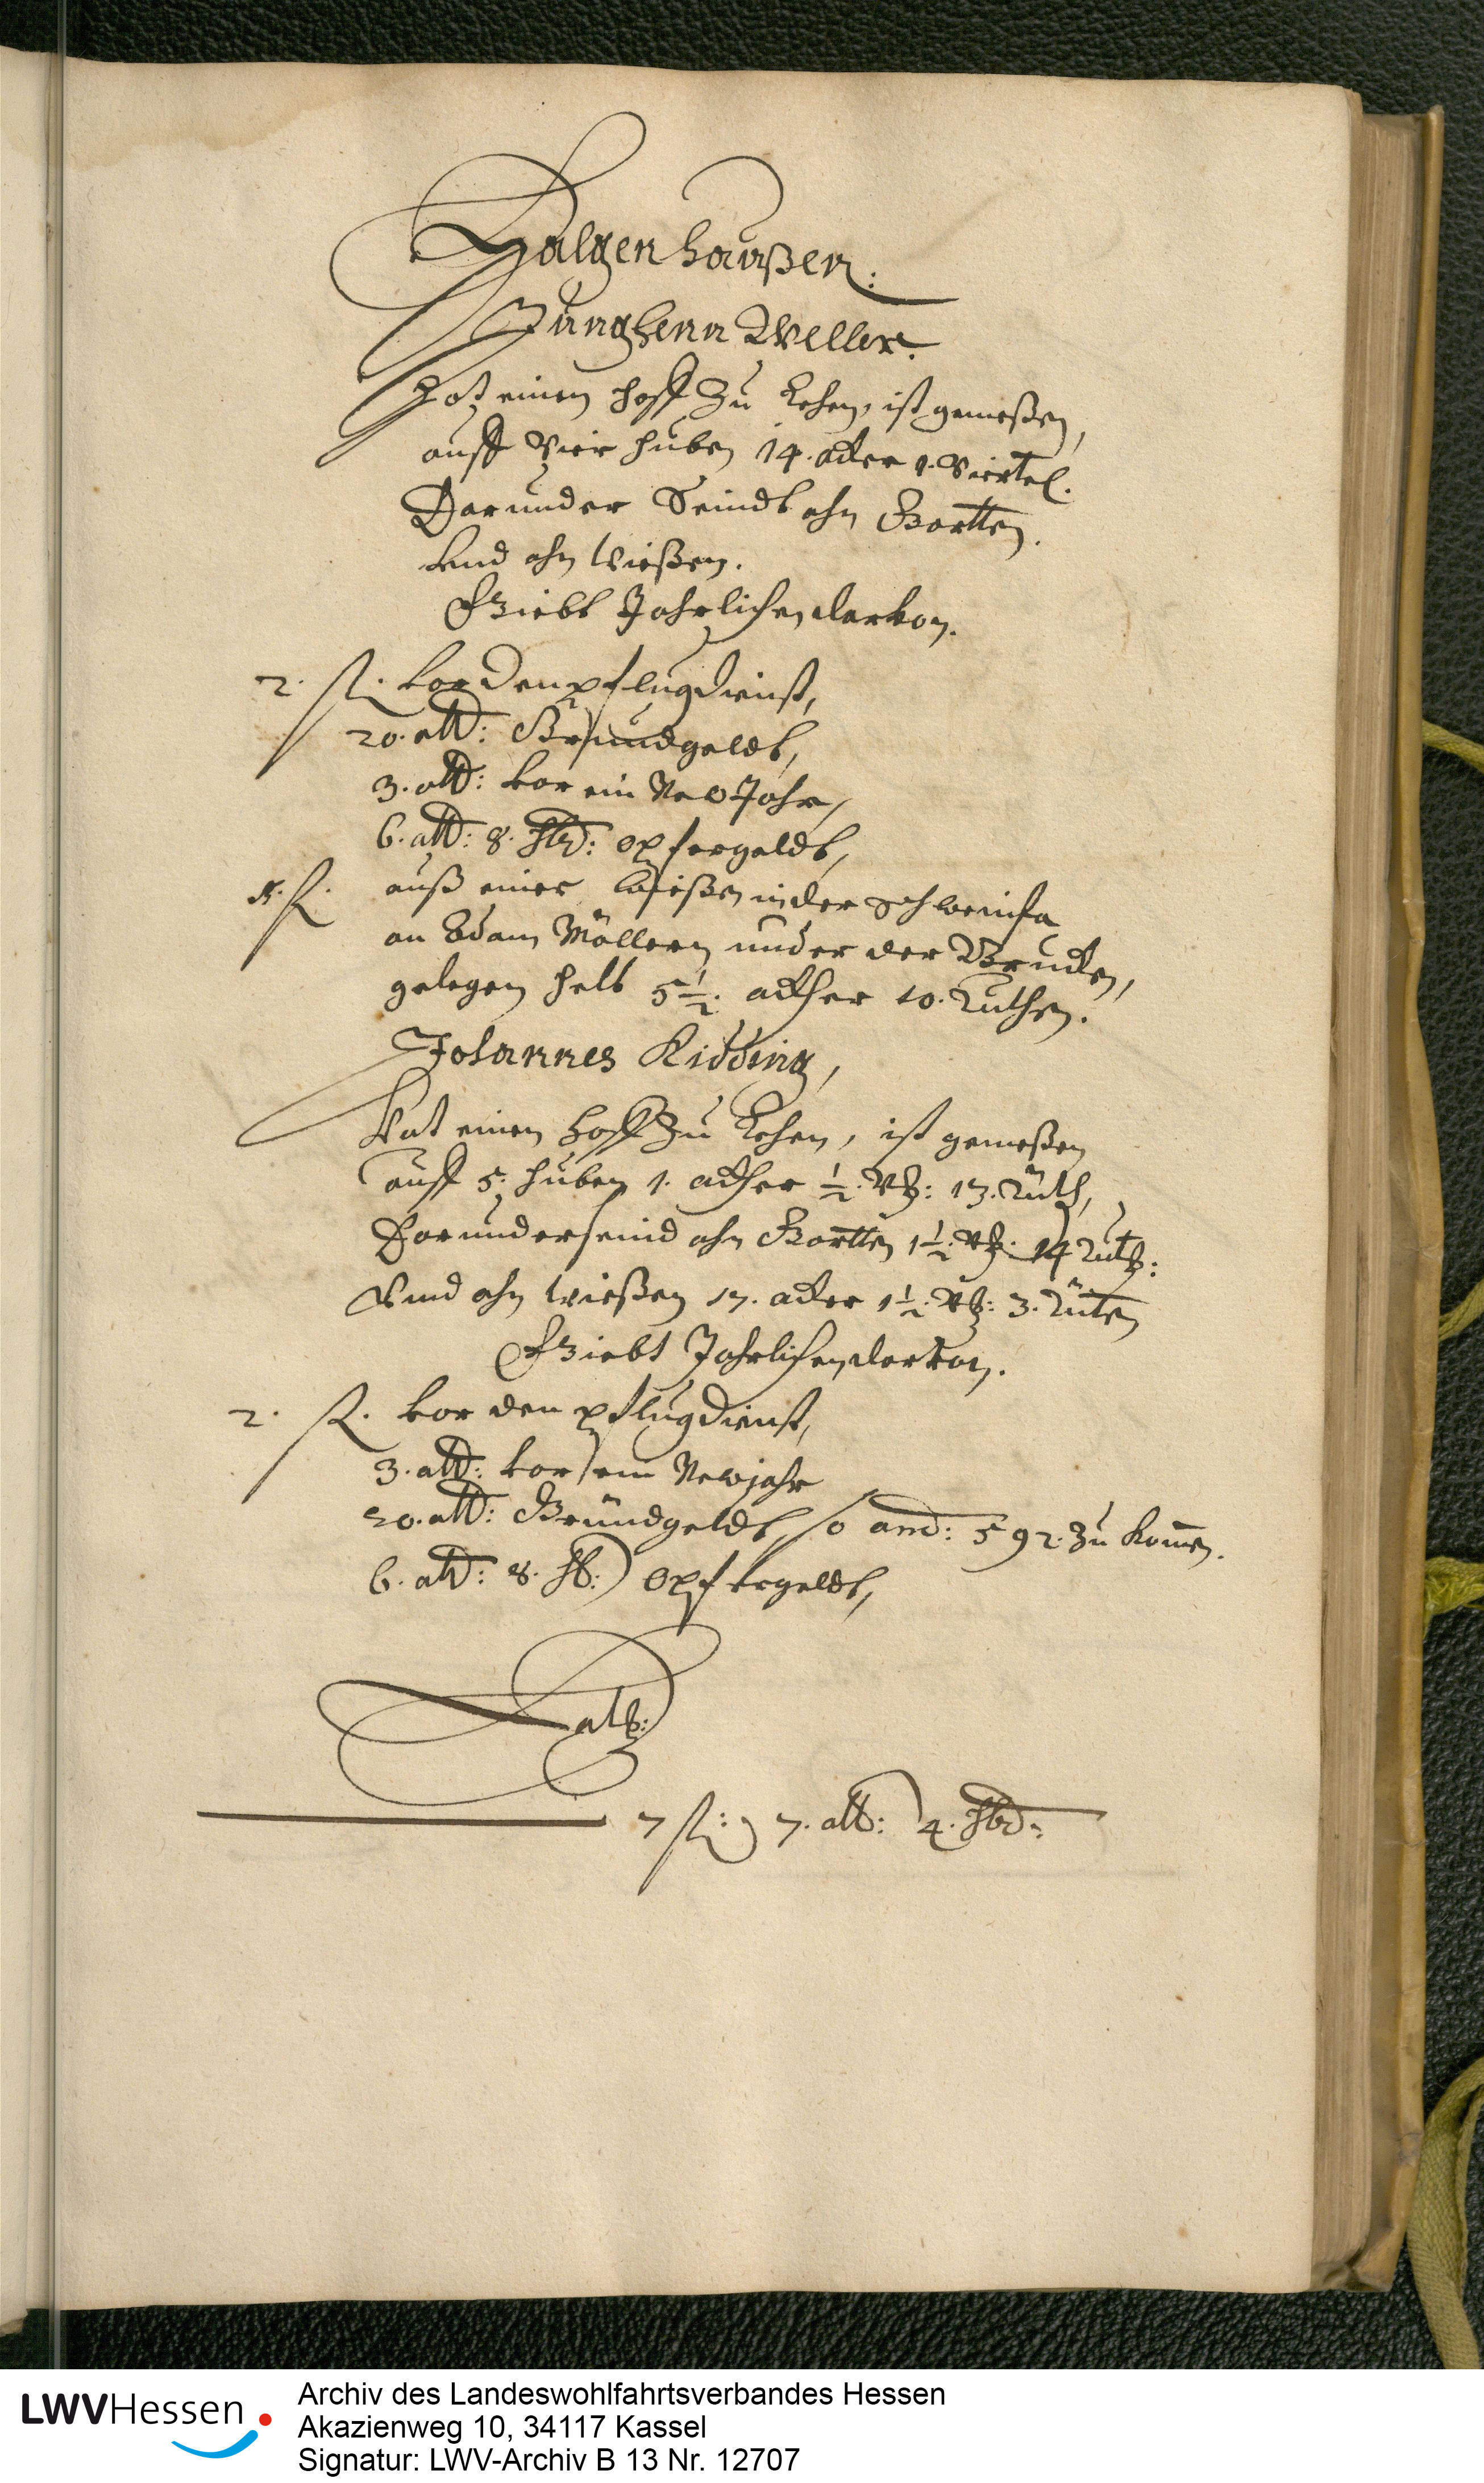 Walgenhaußen:
Junghenn Weller.
Hat einen hoff zu Lehen, ist gemeßen,
auff Vier huben 14. acker 1. Viertel.
Darunder Seindt ahn Gartten.
vnd ahn Wießen.
Giebt Jahrlichen darvon.
2. fl. vor den pflugdienst,
20. alb: Grundgeldt,
3. alb: vor ein New Jahr,
6. alb: 8. hlr: opfergeldt,
1. fl. auß einer Wießen in der Schweinfa
an Adam Möllern under der Brucken,
gelegen helt 5 1/2. ackher 10. Ruthen.
Johannes Kidding,
Hat einen Hoff zu Lehen, ist gemeßen
auff 5. huben 1. ackher 1/2. Vtl: 13. Ruth,
Darunder seind ahn Gartten 1 1/2. Vtl. 14 Ruth:
Vnd ahn Wießen 17. acker 1 1/2. Vtl: 3. Ruten
Giebt Jahrlichen darvon.
2. fl. vor den pflugdienst,
3. alb: vor ein Newjahr
20. alb: Grundgeldt, so 592. zu komen.
6. alb: 8. hl: Opfergeldt,
Lats:
7 fl: 7. alb: 4. hlr:
LWVHessen
Archiv des Landeswohlfahrtsverbandes Hessen
Akazienweg 10, 34117 Kassel
Signatur: LWV-Archiv B 13 Nr. 12707